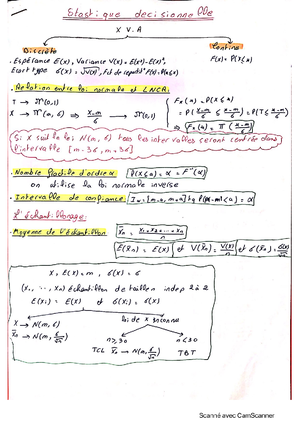 Statistique décisionnelle
X V.A
Discrète
Continue
. Espérance E(X), Variance V(X) = E(X²)-E(X)²,
F(x) = P(X≤x)
Ecart type σ(X) = √V(X), Fct de répart° F(x)=P(X≤x)
. Relation entre loi normale et LNCR.
T → N(0,1)
X → N(m,σ) ⇒ X-m/σ → N(0,1)
Si X suit la loi N(m,σ) tous les intervalles seront centrés dans
l'intervalle [m-3σ, m+3σ]
. Nombre fractile d'ordre α
on utilise la loi normale inverse
. Intervalle de confiance
L'échantillonnage:
. Moyenne de l'échantillon
E(X̄n) = E(X) et V(X̄n) = V(X)/n et σ(X̄n) = σ/√n
X, E(X)=m, σ(X)=σ
(X₁, ..., Xn) échantillon de taille n indep 2 à 2
E(Xi) = E(X) et σ(Xi) = σ(X)
X → N(m,σ)
loi de X inconnue
X̄n → N(m, σ/√n)
n≥30
n<30
TCL X̄n → N(m, σ/√n)
TBT
Scanné avec CamScanner